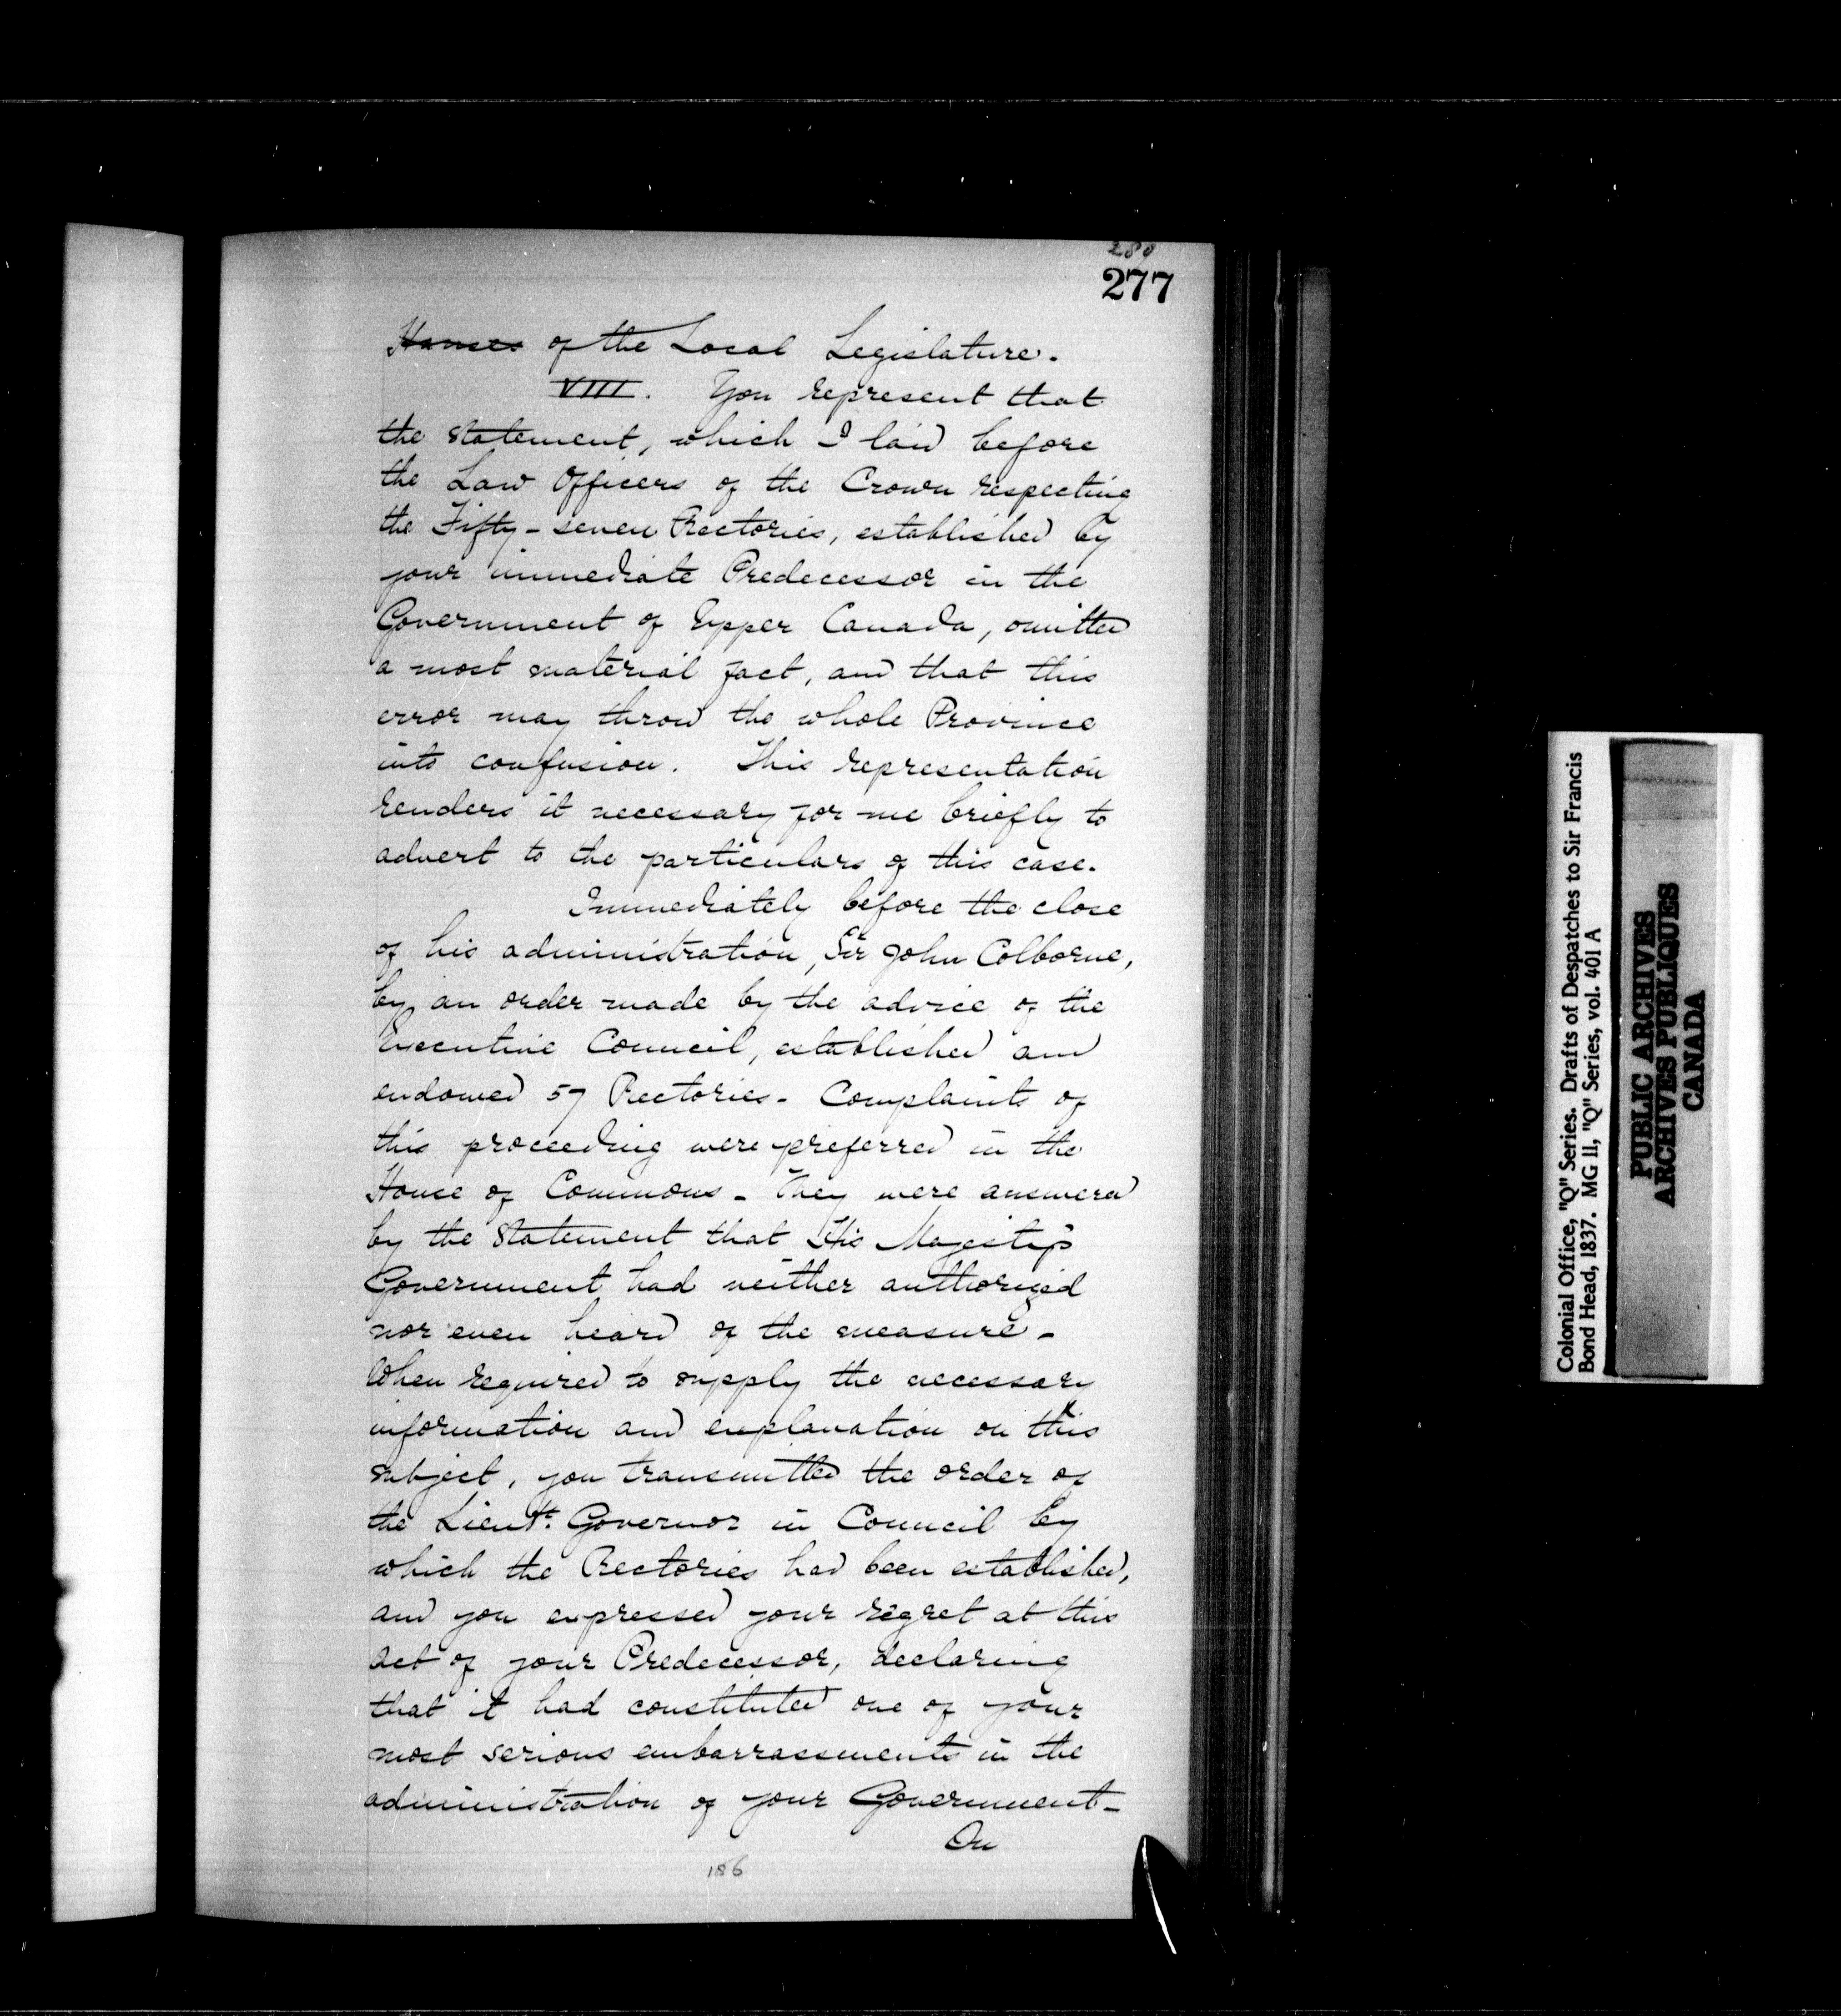 280
277
Houses of the Local Legislature.
VIII. You represent that
the statement, which I laid before
the Law Officers of the Crown respecting
the Fifty-seven Rectories, established by
your immediate Predecessor in the
Government of Upper Canada, omitted
a most material fact, and that this
error may throw the whole Province
into confusion. This representation
renders it necessary for me briefly to
advert to the particulars of this case.
Immediately before the close
of his administration, Sir John Colborne,
by an order made by the advice of the
Executive Council, established and
endowed 57 Rectories - Complaints of
this proceeding were preferred in the
House of Commons - They were answered
by the Statement that His Majesty's
Government had neither authorized
nor even heard of the measure -
When required to supply the necessary
information and explanation on this
subject, you transmitted the order of
the Lieut. Governor in Council by
which the Rectories had been established,
and you expressed your regret at this
act of your Predecessor, declaring
that it had constituted one of your
most serious embarrassments in the
administration of your Government -
On
186
Colonial Office, "Q" Series. Drafts of Despatches to Sir Francis
Bond Head, 1837. MG 11, "Q" Series, vol. 401 A
PUBLIC ARCHIVES
ARCHIVES PUBLIQUES
CANADA